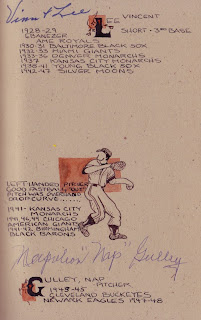 Vin + Lee
LEE VINCENT
SHORT - 3RD BASE
1928-29
EBANEZER
AME ROYALS
1930-31 BALTIMORE BLACK SOX
1932-33 MIAMI GIANTS
1933-36 DENVER MONARCHS
1937 KANSAS CITY MONARCHS
1938-41 YOUNG BLACK SOX
1942-47 SILVER MOONS
LEFT HANDED PITCHER
GOOD FASTBALL, OUT
PITCH WAS OVERHAND
DROP CURVE......
1941- KANSAS CITY
MONARCHS
1941-46,49 CHICAGO
AMERICAN GIANTS
1941-43, BIRMINGHAM
BLACK BARONS
Napoleon "Nap" Gulley
GULLEY, NAP
PITCHER
1943-45
CLEVELAND BUCKEYES
NEWARK EAGLES 1947-48